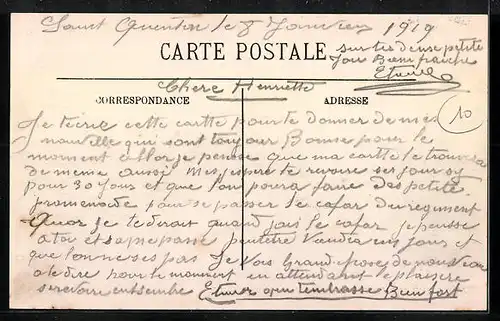 Saint Quentin le 8 Janvier 1919
CARTE POSTALE
sur tes deux petite
Joue Bien fraiche
Chere Henriette
CORRESPONDANCE ADRESSE
10
Je técrie cette cartte pour te donner de mes
nouvelle qui sont toujour Bonne pour le
moment allor je pense que ma cartte te trouvera
de meme aussi Mes jespere te revoire
pour 30 jours et que lon poura faire des petite
promenade pour se passer le cafar du regiment
Quor je te dirait quand jais le cafar je pensse
a toi et sa me passe peutetre viendra un jours et
que lonne ses pas Je vois Grand chose de nouveau
a te dire pour le moment en attendent le plaisire
se revoire entsemble Etuver qui tembrasse Bien fort